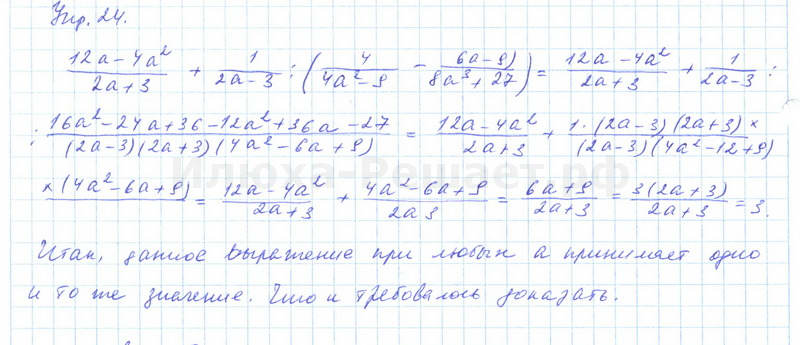 Упр. 24.
(12a - 4a²)/(2a+3) + 1/(2a-3) : (4/(4a²-9) - (6a-9)/(8a³+27)) = (12a - 4a²)/(2a+3) + 1/(2a-3) :
: (16a² - 24a + 36 - 12a² + 36a - 27)/((2a-3)(2a+3)(4a² - 6a + 9)) = (12a - 4a²)/(2a+3) + 1·(2a-3)(2a+3) ×/(2a-3)(4a² - 12 + 9)
× (4a² - 6a + 9) = (12a - 4a²)/(2a+3) + (4a² - 6a + 9)/(2a 3) = (6a+9)/(2a+3) = 3(2a+3)/(2a+3) = 3.
Итак, данное выражение при любых a принимает одно
и то же значение. Что и требовалось доказать.
Илюха-Решает.рф